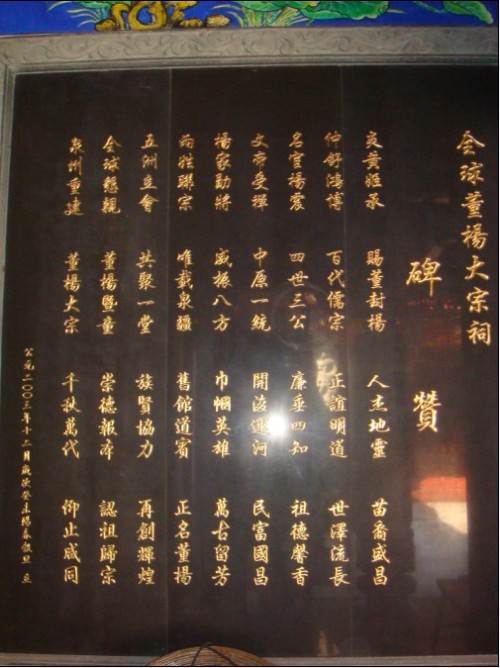 全球董楊大宗祠
碑贊
炎黃胤承 賜董封楊 人杰地靈 苗裔盛昌
仲舒鴻博 百代儒宗 正誼明道 世澤流長
名宦楊震 四世三公 廉垂四知 祖德馨香
文帝受禪 中原一統 開浚運河 民富國昌
楊家勁將 威振八方 巾幗英雄 萬古留芳
兩姓聯宗 唯載泉疆 舊館道賓 正名董楊
五洲立會 共聚一堂 族賢協力 再創輝煌
全球懇親 董楊暨童 崇德報本 認祖歸宗
泉州重建 董楊大宗 千秋萬代 仰止咸同
公元二〇〇三年十二月歲次癸未陽春穀旦 立